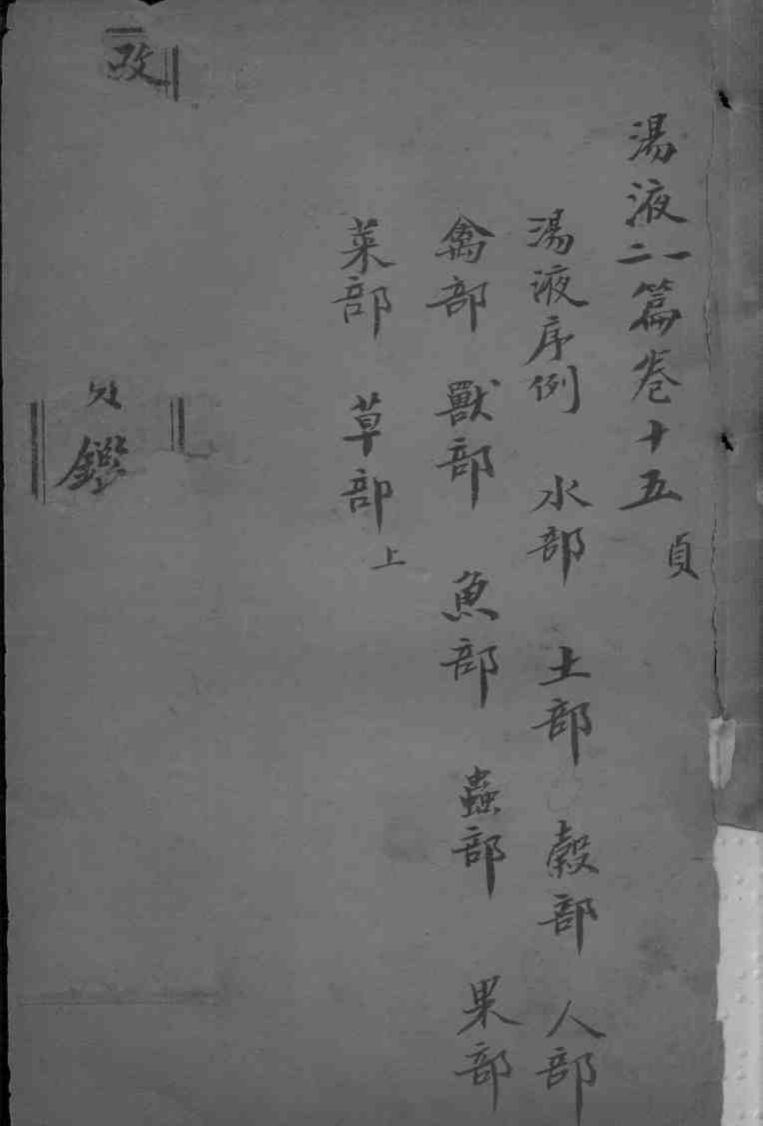 湯液篇卷十五 貞
一二
湯液序例 水部 土部 穀部 人部
禽部 獸部 魚部 蟲部 果部
菜部 草部 上
改
鑑